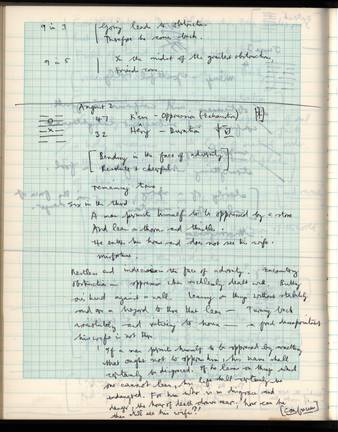 9 in 3 Going leads to obstruction
Therefore he comes back.
9 in 5 X In the midst of the greatest obstruction,
Friends come.
August 2
47 K'un - Oppression (Exhaustion)
32 Heng - Duration
[Bending in the face of adversity]
Resolute & cheerful
remaining true
Six in the third
A man permits himself to be oppressed by a stone
And leans on thorns and thistles.
He enters his house and does not see his wife.
misfortune.
Restless and indecisive in the face of adversity. encountering
obstruction - oppression when recklessly dealt with. Butting
one's head against a wall. Leaning on things without stability
and a hazard to those that lean - Turning back
and retiring to house - a fresh disappointment
his wife is not there
'If a man permits himself to be oppressed by something
that ought not to oppress him, his name shall
certainly be disgraced. If he leans on things which
one cannot lean, his life shall certainly be
endangered. For him who is in disgrace and
danger, the hour of death draws near; how can he
then still see his wife?!' [Confucius]